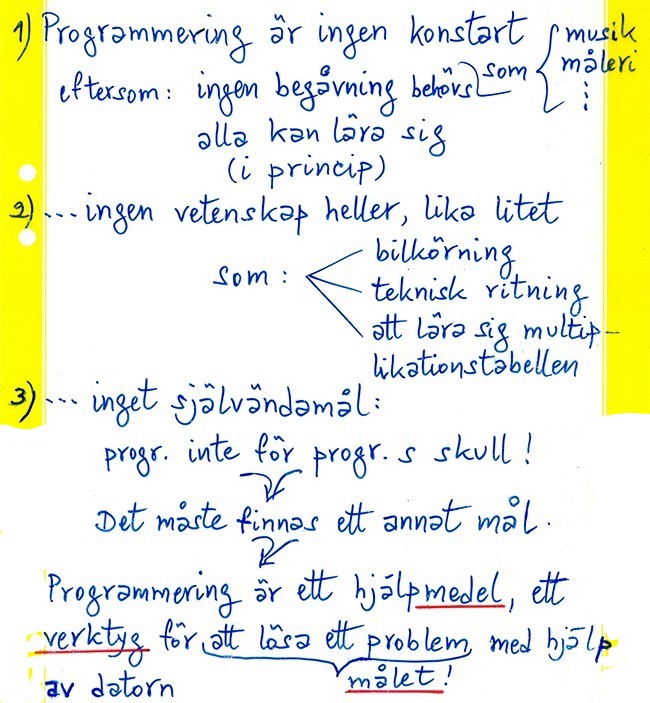 1) Programmering är ingen konstart { musik
eftersom: ingen begåvning behövs som måleri
alla kan lära sig ⋮
(i princip)
2) ... ingen vetenskap heller, lika litet
som: bilkörning
teknisk ritning
att lära sig multip-
likationstabellen
3) ... inget självändamål:
progr. inte för progr. s skull!
Det måste finnas ett annat mål.
Programmering är ett hjälpmedel, ett
verktyg för att lösa ett problem, med hjälp
av datorn målet!